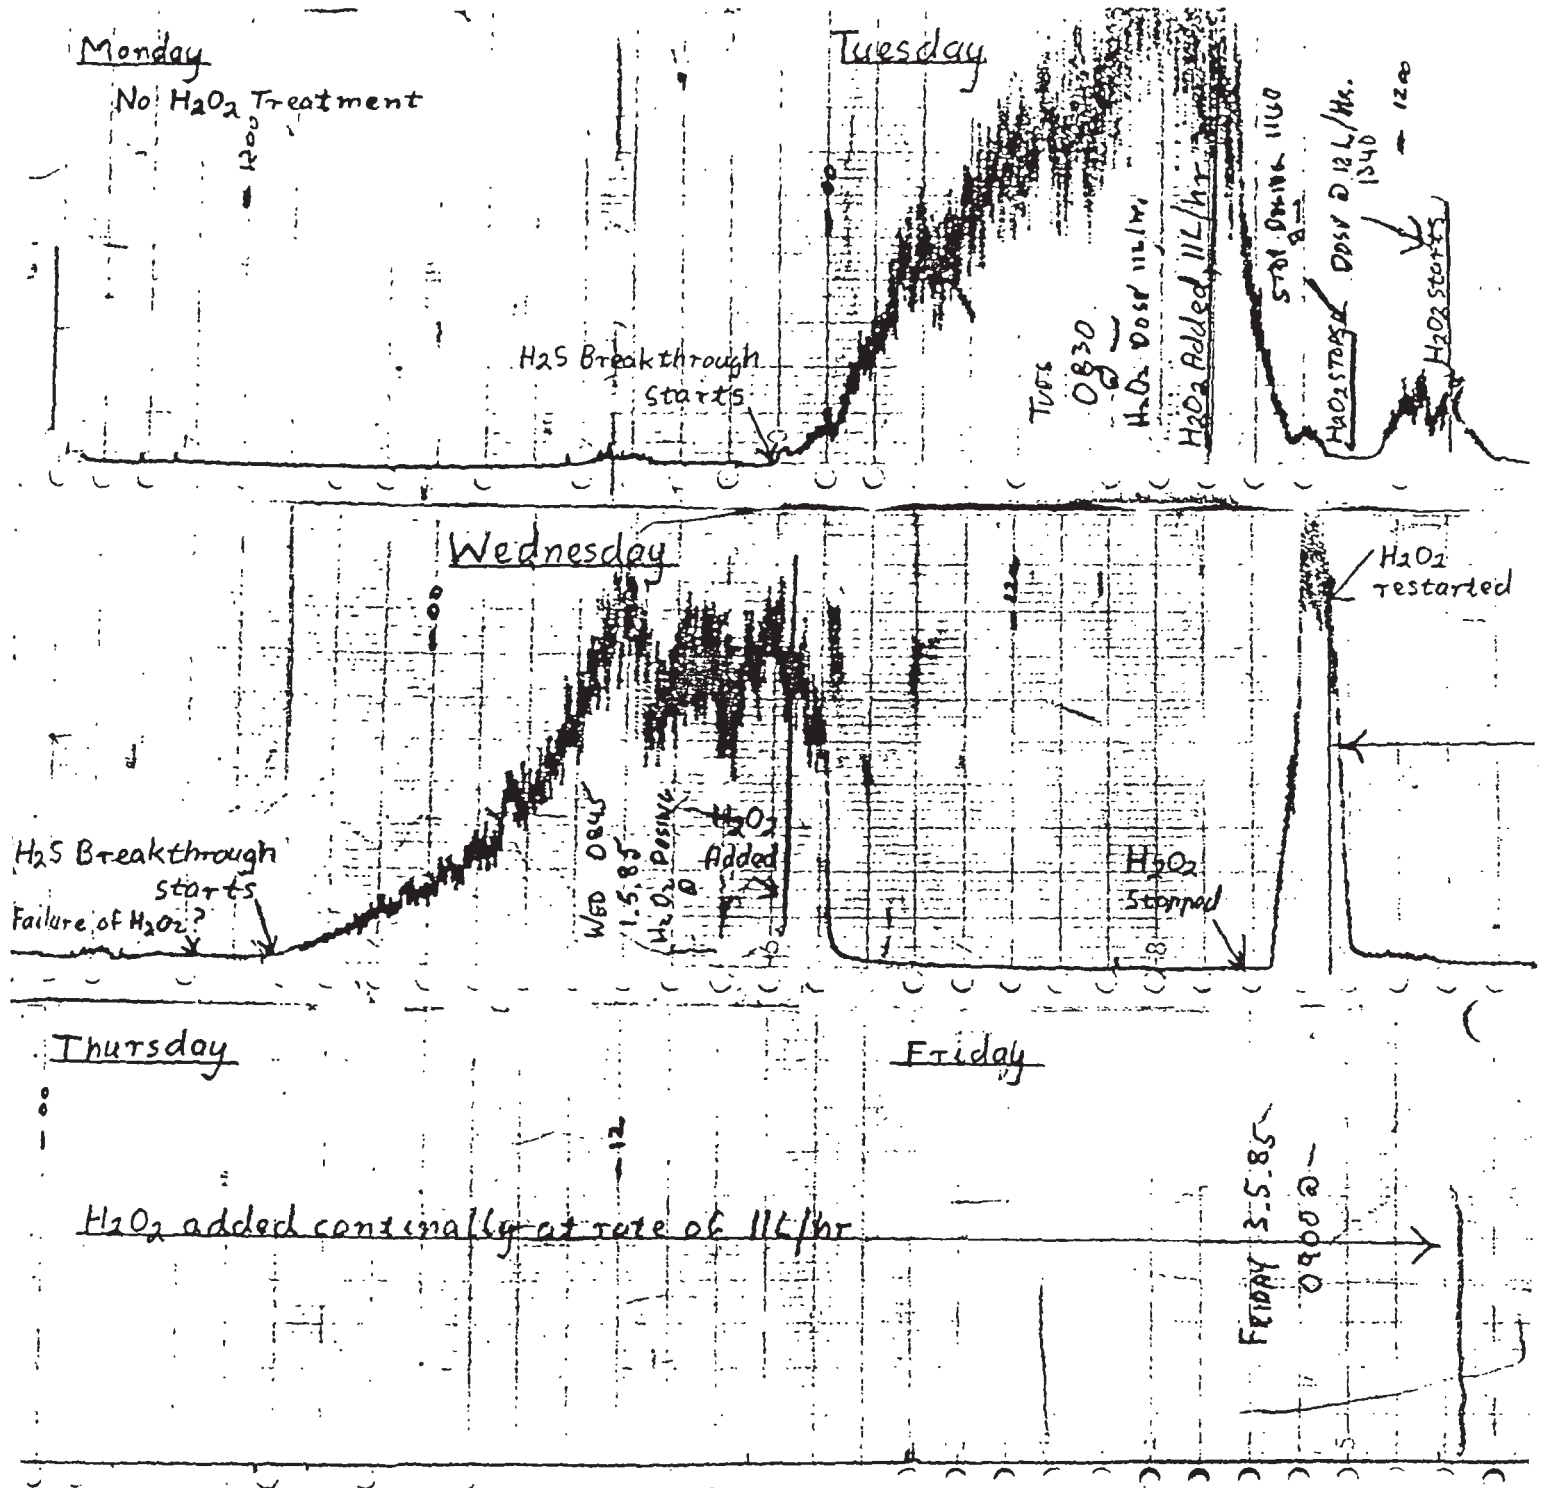 Monday
No H2O2 Treatment
1200
Tuesday
00
H2S Breakthrough
starts
TUES
0830
@ —
H2O2 DOSE 11L/Hr.
H2O2 Added, 11L/hr
STOP DOSING 1100
H2O2 STOPS
DOSE @ 12 L/Hr.
1340
1200
H2O2 Starts
Wednesday
00
H2S Breakthrough
starts
Failure of H2O2?
WED 0845
1.5.85
H2O2 DOSING
@
H2O2
Added
H2O2
Stopped
8
H2O2
restarted
Thursday
00
12
H2O2 added continally at rate of 11L/hr
Friday
FRIDAY 3.5.85
0900 @ —